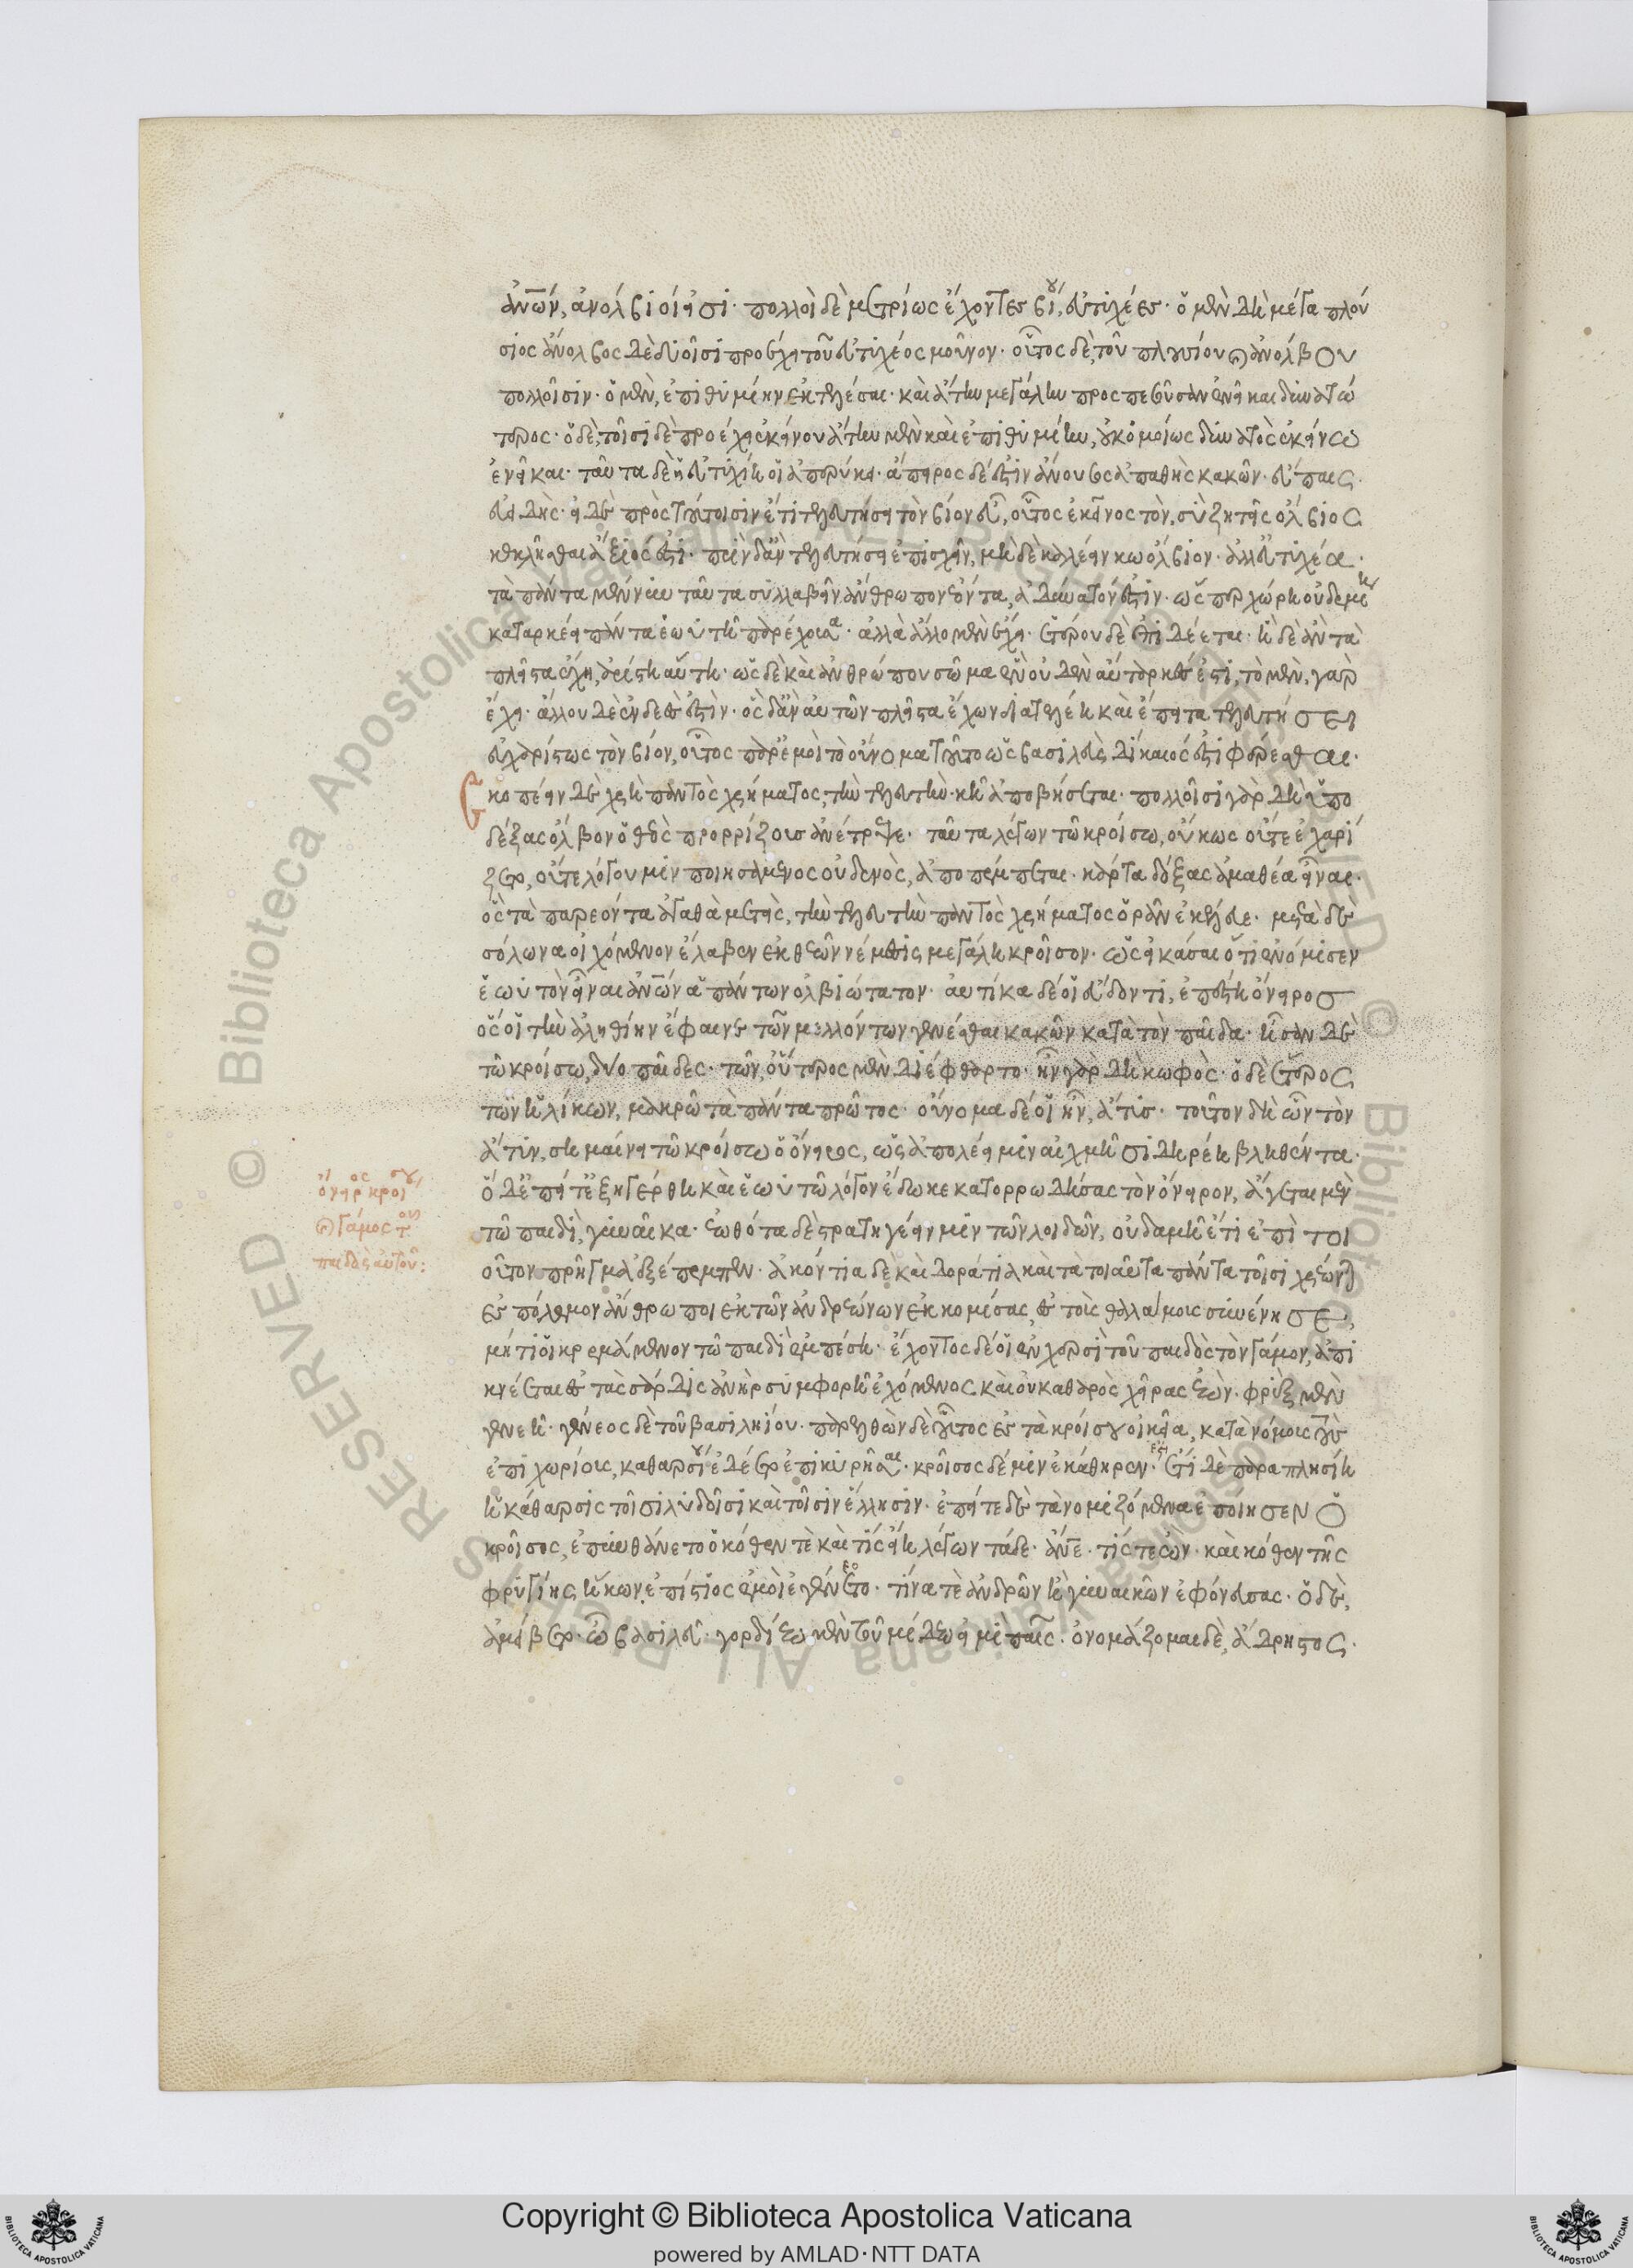 ἀν̅ων, ἀνόλβιοί εἰσι· πολλοὶ δὲ μετρίως ἔχοντες βίου, εὐτυχέες· ὁ μὲν δὴ μέγα πλού
σιος ἄνολβος δὲ δυοῖσι προέχει τοῦ εὐτυχέος μοῦνον· οὗτος δὲ, τοῦ πλουσίου καὶ ἀνόλβου
πολλοῖσιν· ὁ μὲν, ἐπιθυμίην ἐκτελέσαι· καὶ ἄτην μεγάλην προσπεσοῦσαν ἐνεῖκαι δυνατώ
τερος· ὁ δὲ, τοῖσι δὲ προέχει ἐκείνου ἄτην μὲν καὶ ἐπιθυμίην, οὐκ ὁμοίως δυνατὸς ἐκείνω
ἐνεῖκαι· ταῦτα δὲ ἡ εὐτυχίη οἱ ἀπερύκει· ἄπηρος δέ ἐστιν ἄνουσος ἀπαθὴς κακῶν· εὔπαις·
εὐειδής· εἰ δὲ πρὸς τούτοισιν ἔτι τελευτήσει τὸν βίον εὖ, οὗτος ἐκεῖνος τὸν, σὺ ζητεῖς ὄλβιος
κεκλῆσθαι ἄξιός ἐστι· πρὶν δ' ἂν τελευτήσει ἐπισχεῖν, μὴ δὲ καλέειν κω ὄλβιον· ἀλλ' εὐτυχέα·
τὰ πάντα μέν νυν ταῦτα συλλαβεῖν ἄνθρωπον ἐόντα, ἀδύνατόν ἐστιν· ὥσπερ χώρη οὐδεμίη
καταρκέει πάντα ἑωυτῆ παρέχουσα· ἀλλὰ ἄλλο μὲν ἔχει· ἑτέρου δὲ ἐπιδέεται· ἡ δὲ ἂν τὰ
πλεῖστα ἔχη, ἀρίστη αὕτη· ὣς δὲ καὶ ἀνθρώπου σῶμα ἓν οὐδὲν αὔταρκές ἐστι, τὸ μὲν, γὰρ
ἔχει· ἄλλου δὲ ἐνδεές ἐστιν· ὃς δ' ἂν αὐτῶν πλεῖστα ἔχων διατελέη καὶ ἔπειτα τελευτήσει
εὐχαρίστως τὸν βίον, οὗτος παρ' ἐμοὶ τὸ οὔνομα τοῦτο ὦ βασιλεῦ δίκαιός ἐστι φέρεσθαι·
σκοπέειν δὲ χρὴ παντὸς χρήματος, τὴν τελευτὴν· κῆ ἀποβήσεται· πολλοῖσι γὰρ δὴ ὑπο
δέξας ὄλβον ὁ θεὸς προρρίζους ἀνέτρεψε· ταῦτα λέγων τῶ κροίσω, οὔ κως οὔτε ἐχαρί
ζετο, οὔτε λόγου μιν ποιησάμενος οὐδενὸς, ἀποπέμπεται· κάρτα δόξας ἀμαθέα εἶναι·
ὃς τὰ παρεόντα ἀγαθὰ μετεὶς, τὴν τελευτὴν παντὸς χρήματος ὁρᾶν ἐκέλευε· μετὰ δὲ
σόλωνα οἰχόμενον ἔλαβεν ἐκ θεῶν νέμεσις μεγάλη κροῖσον· ὡς εἰκάσαι ὅτι ἐνόμισεν
ἑωυτὸν εἶναι ἀν̅ων ἁπάντων ὀλβιώτατον· αὐτίκα δέ οἱ εὕδοντι, ἐπέστη ὄνειρος
ὅς οἱ τὴν ἀληθίην ἔφαινε τῶν μελλόντων γενέσθαι κακῶν κατὰ τὸν παῖδα· ἦσαν δὲ
τῶ κροίσω, δύο παῖδες· τῶν, οὕτερος μὲν διέφθαρτο· ἦν γὰρ δὴ κωφὸς· ὁ δὲ ἕτερος
τῶν ἡλίκων, μακρῶ τὰ πάντα πρῶτος· οὔνομα δέ οἱ ἦν, ἄτυς· τοῦτον δὴ ὦν τὸν
ἄτυν, σημαίνει τῶ κροίσω ὁ ὄνειρος, ὡς ἀπολέει μιν αἰχμῆ σιδηρέη βληθέντα·
ὁ δ' ἐπεί τ' ἐξηγέρθη καὶ ἑωυτῶ λόγον ἔδωκε καταρρωδήσας τὸν ὄνειρον, ἄγεται μὲν
τῶ παιδὶ, γυναῖκα· ἐωθότα δὲ στρατηγέειν μιν τῶν λυδῶν, οὐδαμῆ ἔτι ἐπὶ τοι
οῦτον πρῆγμα ἐξέπεμπεν· ἀκόντια δὲ καὶ δοράτια καὶ τὰ τοιαῦτα πάντα τοῖσι χρέωνται
ἐς πόλεμον ἄνθρωποι ἐκ τῶν ἀνδρεώνων ἐκκομίσας, ἐς τοὺς θαλάμους συνένησε,
μή τί οἱ κρεμάμενον τῶ παιδὶ ἐμπέση· ἔχοντος δέ οἱ ἐν χερσὶ τοῦ παιδὸς τὸν γάμον, ἀπι
κνέεται ἐς τὰς σάρδις ἀνὴρ συμφορῆ ἐχόμενος καὶ οὐ καθαρὸς χεῖρας ἐὼν· φρὺξ μὲν
γενεῆ· γένεος δὲ τοῦ βασιληίου· παρελθὼν δὲ οὗτος ἐς τὰ κροίσου οἰκία, κατὰ νόμους τοὺς
ἐπιχωρίους, καθαρσίου ἐδέετο ἐπικυρῆσαι· κροῖσος δέ μιν ἐκάθηρεν· ἔστι δὲ παραπλησίη
ἡ κάθαρσις τοῖσι λυδοῖσι καὶ τοῖσιν ἕλλησιν· ἐπεί τε δὲ τὰ νομιζόμενα ἐποίησεν ὁ
κροῖσος, ἐπυνθάνετο ὁκόθεν τὲ καὶ τίς εἴη λέγων τάδε· ἄν̅ε· τίς τε ἐὼν· καὶ κόθεν τῆς
φρυγίης ἥκων, ἐπίστιος ἐμοὶ ἐγένεο· τίνα τὲ ἀνδρῶν ἢ γυναικῶν ἐφόνευσας· ὁ δὲ,
ἀμείβετο· ὦ βασιλεῦ· γορδίεω μὲν τοῦ μίδεώ εἰμι παῖς· ὀνομάζομαι δὲ, ἄδρηστος·
ὄνειρος κροίσου
καὶ γάμος τοῦ
παιδὸς αὐτοῦ:
© Biblioteca Apostolica Vaticana ALL RIGHTS RESERVED
Copyright © Biblioteca Apostolica Vaticana
powered by AMLAD·NTT DATA
BIBLIOTECA APOSTOLICA VATICANA
BIBLIOTECA APOSTOLICA VATICANA